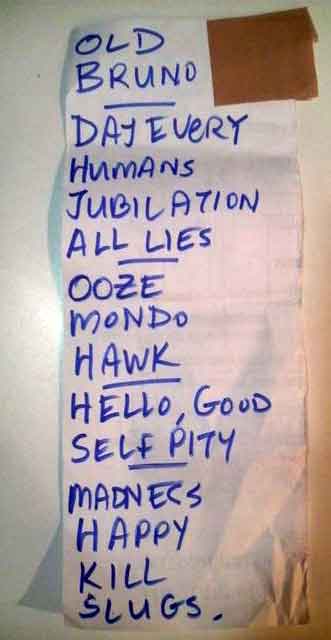 OLD
BRUNO
DAY EVERY
HUMANS
JUBILATION
ALL LIES
OOZE
MONDO
HAWK
HELLO, GOOD
SELF PITY
MADNECS
HAPPY
KILL
SLUGS.